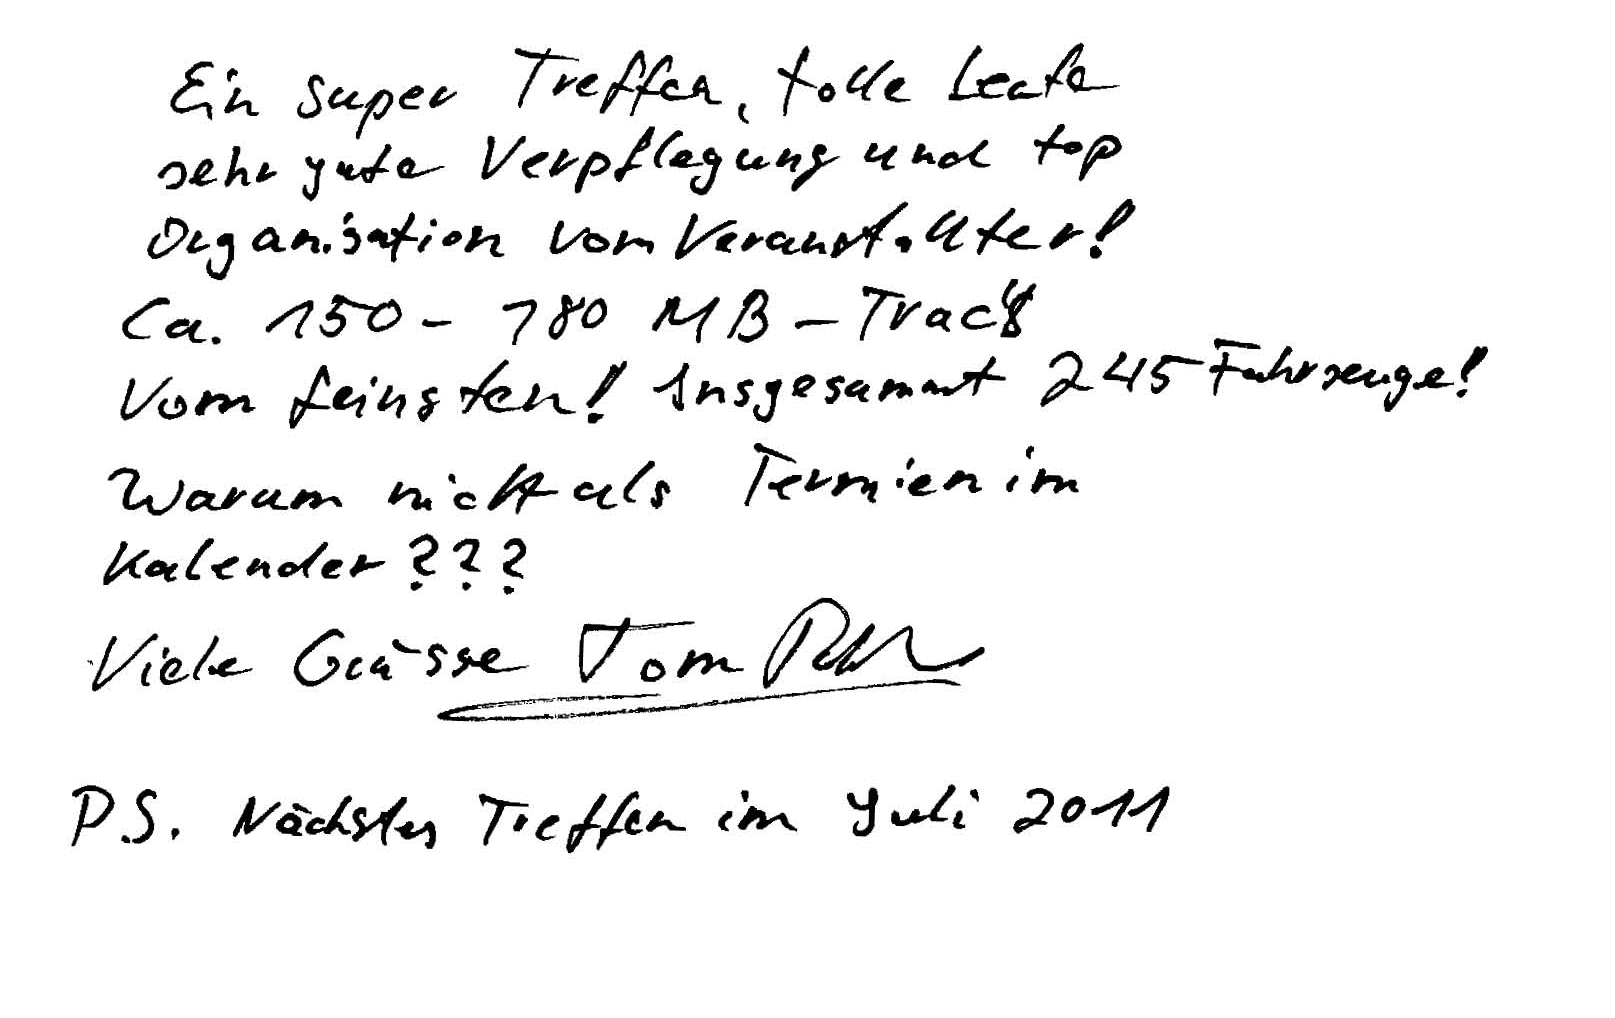 Ein super Treffen, tolle Leute
sehr gute Verpflegung und top
Organisation vom Veranstallter!
Ca. 150 - 180 MB - Trac's
Vom feinsten! Insgesammt 245 Fahrzeuge!
Warum nicht als Termien im
Kalender ???
Viele Grüsse Tom
P.S. Nächstes Treffen im Juli 2011